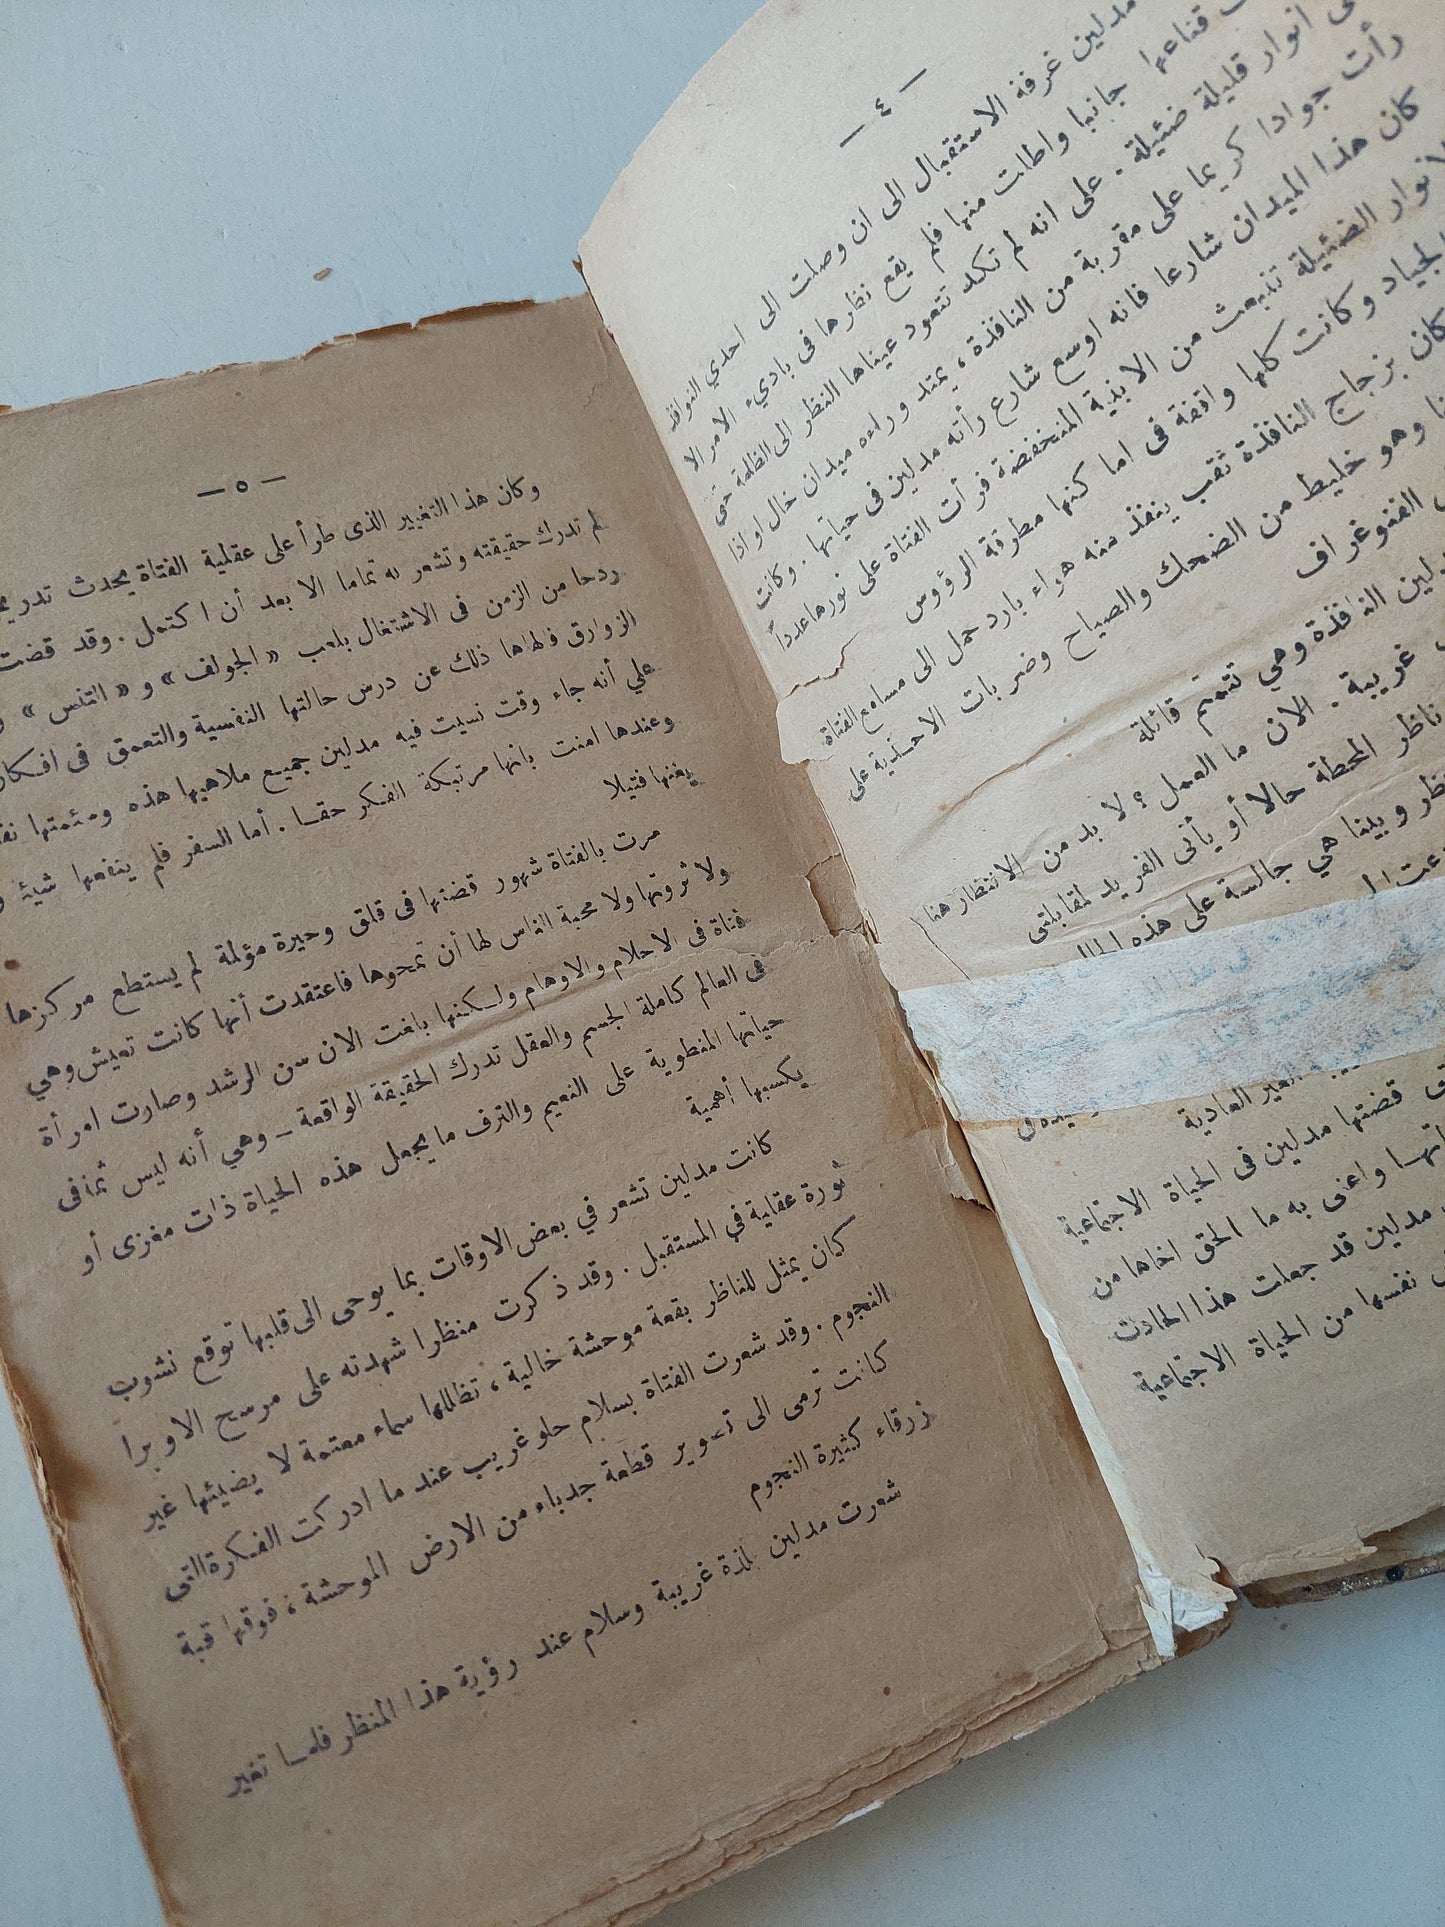 — ٤ —
مدلين غرفة الاستقبال الى ان وصلت الى احدي النوافذ
قناعها جانبا واطلت منها فلم يقع نظرها فى باديء الامر الا
انوار قليلة ضئيلة . على انه لم تكد تتعود عيناها النظر الى الظلمة حتى
رأت جوادا كريما على مقربة من النافذة ، يمتد وراءه ميدان خال او اذا
كان هذا الميدان شارعا فانه اوسع شارع رأته مدلين فى حياتها . وكانت
الانوار الضئيلة تنبعث من الابنية المنخفضة فرأت الفتاة على نورها عدداً
الجياد وكانت كلها واقفة فى اما كنها مطرقة الرؤوس
كان بزجاج النافذة ثقب ينفذ منه هواء بارد حمل الى مسامع الفتاة
وهو خليط من الضحك والصياح وضربات الاحذية على
الفنوغراف
النافذة وهي تتمتم قائلة
غريبة . الان ما العمل ؟ لا بد من الانتظار هنا
ناظر المحطة حالا أو يأتى الفريد لمقابلتى
وبينا هي جالسة على هذه
الغير العادية
قضتها مدلين فى الحياة الاجتماعية
واعنى به ما الحق اخاها من
مدلين قد جعلت هذا الحادث
نفسها من الحياة الاجتماعية
— ٥ —
وكان هذا التغيير الذى طرأ على عقلية الفتاة يحدث
لم تدرك حقيقته وتشعر به تماما الا بعد أن اكتمل . وقد قضت
ردحا من الزمن فى الاشتغال بلعب « الجولف » و « التنس »
الزوارق فالهاها ذلك عن درس حالتها النفسية والتعمق فى
علي أنه جاء وقت نسيت فيه مدلين جميع ملاهيها هذه وسئمتها
وعندها امنت بانها مرتبكة الفكر حقا . أما السفر فلم ينفعها شيئا
يغنها فتيلا
مرت بالفتاة شهور قضتها فى قلق وحيرة مؤلمة لم يستطع مركزها
ولا ثروتها ولا محبة الناس لها أن تمحوها فاعتقدت أنها كانت تعيش وهي
فتاة فى الاحلام والاوهام ولكنها بلغت الان سن الرشد وصارت امرأة
فى العالم كاملة الجسم والعقل تدرك الحقيقة الواقعة ــ وهي أنه ليس ثمة فى
حياتها المنطوية على النعيم والترف ما يجعل هذه الحياة ذات مغزى أو
يكسبها أهمية
كانت مدلين تشعر في بعض الاوقات بما يوحى الى قلبها توقع نشوب
ثورة عقلية في المستقبل . وقد ذكرت منظرا شهدته على مرسح الاوبرا
كان يمثل للناظر بقعة موحشة خالية ، تظللها سماء معتمة لا يضيئها غير
النجوم . وقد شعرت الفتاة بسلام حلو غريب عند ما ادركت الفكرة التى
كانت ترمى الى تصوير قطعة جدباء من الارض الموحشة ، فوقها قبة
زرقاء كثيرة النجوم
شعرت مدلين بلذة غريبة وسلام عند رؤية هذا المنظر فلما تغير